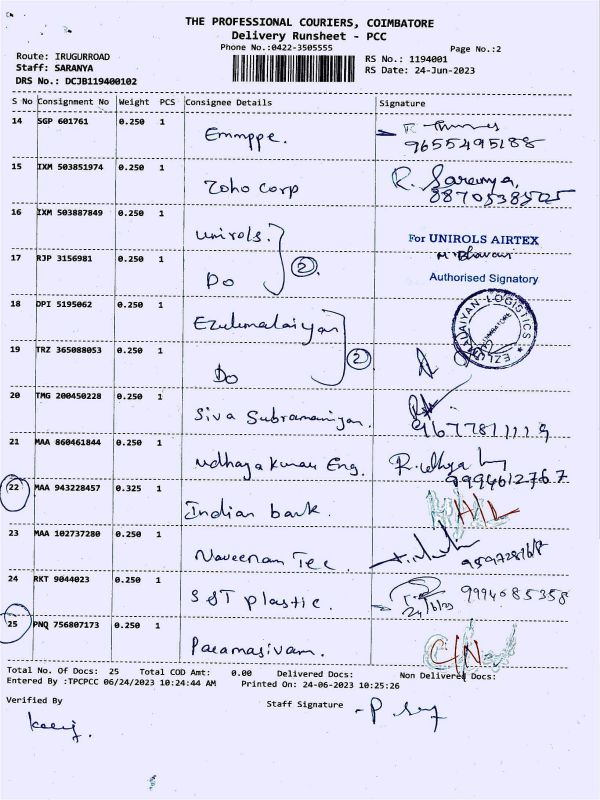 THE PROFESSIONAL COURIERS, COIMBATORE
Delivery Runsheet - PCC
Phone No.:0422-3505555
Page No.:2
Route: IRUGURROAD
RS No.: 1194001
Staff: SARANYA
RS Date: 24-Jun-2023
DRS No.: DCJB119400102
S No Consignment No Weight PCS Consignee Details Signature
14 SGP 601761 0.250 1
Emmppe.
9655495188
15 IXM 503851974 0.250 1
Zoho corp
R. Saranya,
8870538505
16 IXM 503887849 0.250 1
Unirols.
For UNIROLS AIRTEX
17 RJP 3156981 0.250 1
2
Do
Authorised Signatory
18 DPI 5195062 0.250 1
Ezulumalaiyan
EZLUMALAIYAN LOGISTICS
COIMBATORE
19 TRZ 365088053 0.250 1
2
Do
20 TMG 200450228 0.250 1
Siva Subramaniyan.
9677811119
21 MAA 860461844 0.250 1
Udhaya kumar Eng.
9994612767
22 MAA 943228457 0.325 1
Indian bank.
23 MAA 102737280 0.250 1
Naveenam Tec
24 RKT 9044023 0.250 1
S&T plastic.
24/6/23 9994085358
25 PNQ 756807173 0.250 1
Paramasivam.
C/N
Total No. Of Docs: 25 Total COD Amt: 0.00 Delivered Docs: Non Delivered Docs:
Entered By :TPCPCC 06/24/2023 10:24:44 AM Printed On: 24-06-2023 10:25:26
Verified By
Staff Signature